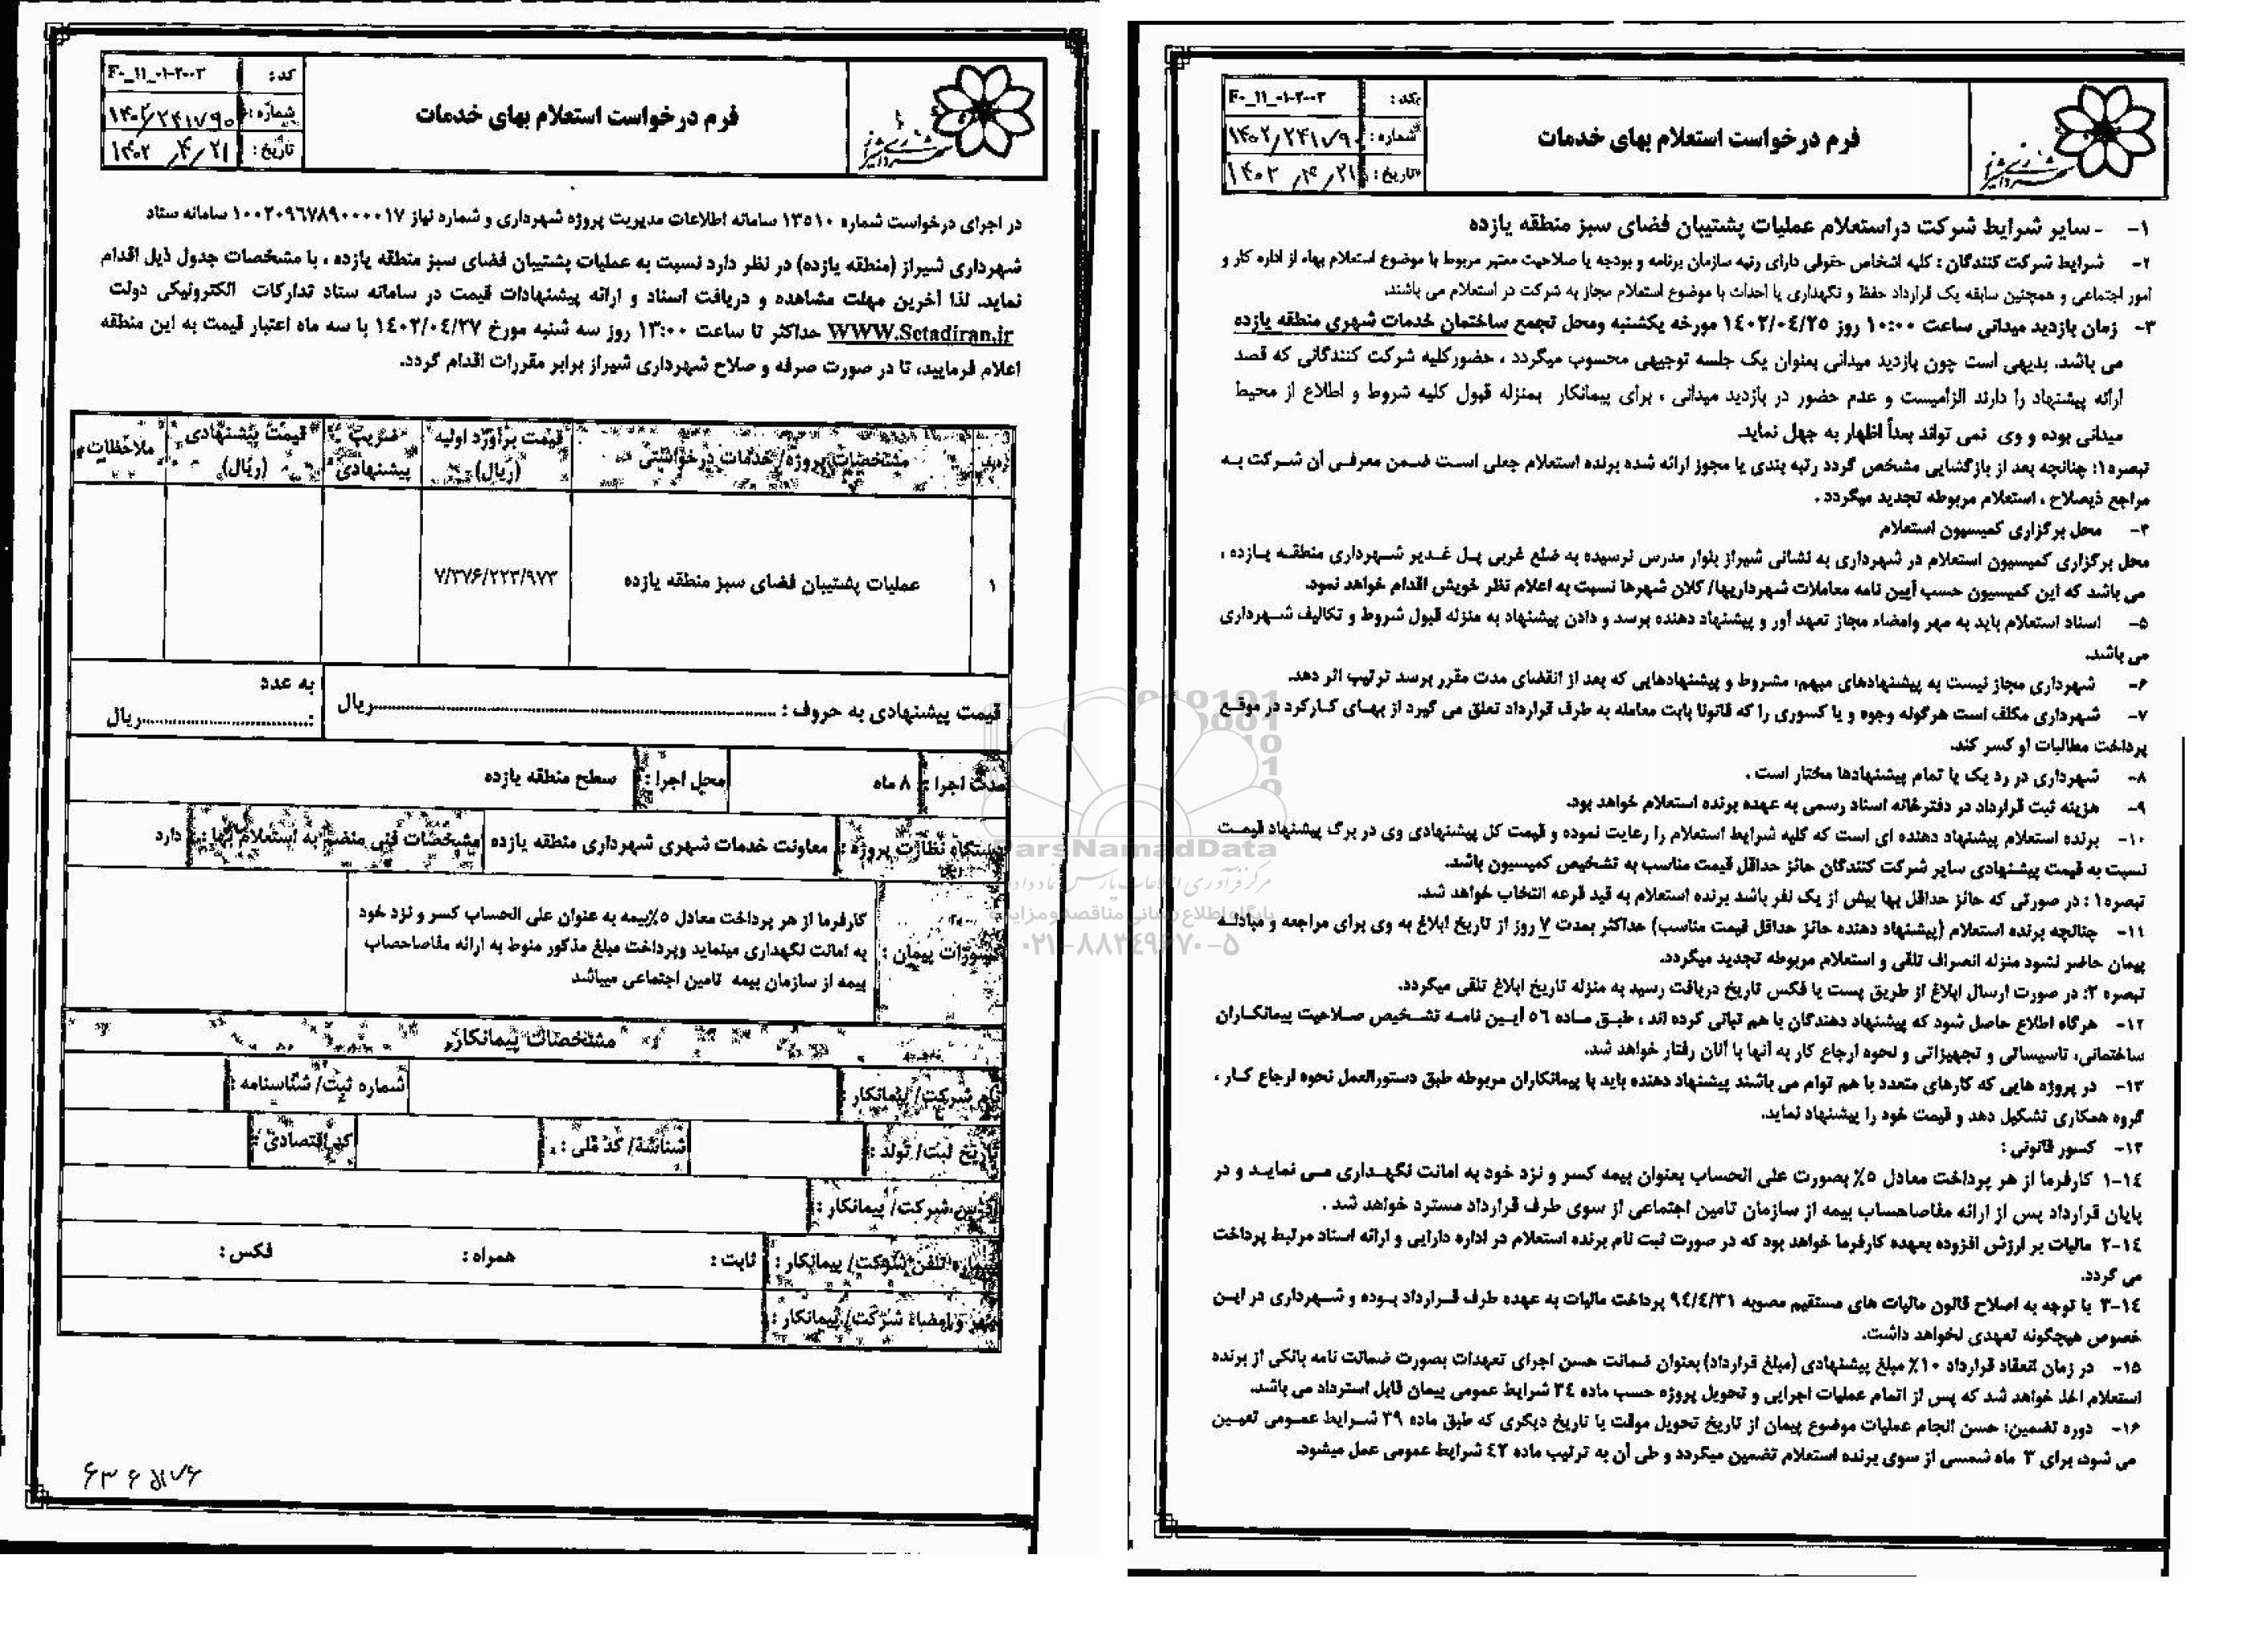 فرم درخواست استعلام بهای خدمات
کد : F۰_۱۱_۰۱-۲۰۰۳
شماره : ۱۴۰۲/۲۴۱۷۹۰
تاریخ : ۱۴۰۲/۴/۲۱
در اجرای درخواست شماره ۱۳۵۱۰ سامانه اطلاعات مدیریت پروژه شهرداری و شماره نیاز ۱۰۰۲۰۹۶۷۸۹۰۰۰۰۱۷ سامانه ستاد
شهرداری شیراز (منطقه یازده) در نظر دارد نسبت به عملیات پشتیبان فضای سبز منطقه یازده ، با مشخصات جدول ذیل اقدام
نماید. لذا آخرین مهلت مشاهده و دریافت اسناد و ارائه پیشنهادات قیمت در سامانه ستاد تدارکات الکترونیکی دولت
WWW.Setadiran.ir حداکثر تا ساعت ۱۳:۰۰ روز سه شنبه مورخ ۱٤۰۲/۰٤/۲۷ با سه ماه اعتبار قیمت به این منطقه
اعلام فرمایید، تا در صورت صرفه و صلاح شهرداری شیراز برابر مقررات اقدام گردد.
ردیف مشخصات پروژه/ خدمات درخواستی قیمت برآورد اولیه (ریال) ضریب پیشنهادی قیمت پیشنهادی (ریال) ملاحظات
۱ عملیات پشتیبان فضای سبز منطقه یازده ۷/۳۷۶/۲۲۳/۹۷۳
قیمت پیشنهادی به حروف : ........................ریال به عدد :........................ریال
مدت اجرا : ۸ ماه محل اجرا : سطح منطقه یازده
دستگاه نظارت پروژه : معاونت خدمات شهری شهرداری منطقه یازده مشخصات فنی منضم به استعلام بها : دارد
کسورات پیمان : کارفرما از هر پرداخت معادل ۵٪بیمه به عنوان علی الحساب کسر و نزد خود
به امانت نگهداری مینماید وپرداخت مبلغ مذکور منوط به ارائه مفاصاحساب
بیمه از سازمان بیمه تامین اجتماعی میباشد
مشخصات پیمانکار
نام شرکت/ پیمانکار : شماره ثبت/ شناسنامه :
تاریخ ثبت/ تولد : شناسة/ کد ملی : کد اقتصادی :
آدرس شرکت/ پیمانکار :
شماره تلفن شرکت/ پیمانکار : ثابت : همراه : فکس :
مهر و امضاء شرکت/ پیمانکار :
فرم درخواست استعلام بهای خدمات
کد : F۰_۱۱_۰۱-۲۰۰۳
شماره : ۱۴۰۲/۲۴۱۷۹۰
تاریخ : ۱۴۰۲/۴/۲۱
۱- - سایر شرایط شرکت دراستعلام عملیات پشتیبان فضای سبز منطقه یازده
۲- شرایط شرکت کنندگان : کلیه اشخاص حقوقی دارای رتبه سازمان برنامه و بودجه یا صلاحیت معتبر مربوط با موضوع استعلام بهاء از اداره کار و
امور اجتماعی و همچنین سابقه یک قرارداد حفظ و نگهداری یا احداث با موضوع استعلام مجاز به شرکت در استعلام می باشند.
۳- زمان بازدید میدانی ساعت ۱۰:۰۰ روز ۱٤۰۲/۰٤/۲۵ مورخه یکشنبه ومحل تجمع ساختمان خدمات شهری منطقه یازده
می باشد. بدیهی است چون بازدید میدانی بعنوان یک جلسه توجیهی محسوب میگردد ، حضورکلیه شرکت کنندگانی که قصد
ارائه پیشنهاد را دارند الزامیست و عدم حضور در بازدید میدانی ، برای پیمانکار بمنزله قبول کلیه شروط و اطلاع از محیط
میدانی بوده و وی نمی تواند بعداً اظهار به جهل نماید.
تبصره۱: چنانچه بعد از بازگشایی مشخص گردد رتبه بندی یا مجوز ارائه شده برنده استعلام جعلی است ضمن معرفی آن شرکت به
مراجع ذیصلاح ، استعلام مربوطه تجدید میگردد .
۴- محل برگزاری کمیسیون استعلام
محل برگزاری کمیسیون استعلام در شهرداری به نشانی شیراز بلوار مدرس نرسیده به ضلع غربی پل غدیر شهرداری منطقه یازده ،
می باشد که این کمیسیون حسب آیین نامه معاملات شهرداریها/ کلان شهرها نسبت به اعلام نظر خویش اقدام خواهد نمود.
۵- اسناد استعلام باید به مهر وامضاء مجاز تعهد آور و پیشنهاد دهنده برسد و دادن پیشنهاد به منزله قبول شروط و تکالیف شهرداری
می باشد.
۶- شهرداری مجاز نیست به پیشنهادهای مبهم، مشروط و پیشنهادهایی که بعد از انقضای مدت مقرر برسد ترتیب اثر دهد.
۷- شهرداری مکلف است هرگونه وجوه و یا کسوری را که قانونا بابت معامله به طرف قرارداد تعلق می گیرد از بهای کارکرد در موقع
پرداخت مطالبات او کسر کند.
۸- شهرداری در رد یک یا تمام پیشنهادها مختار است .
۹- هزینه ثبت قرارداد در دفترخانه اسناد رسمی به عهده برنده استعلام خواهد بود.
۱۰- برنده استعلام پیشنهاد دهنده ای است که کلیه شرایط استعلام را رعایت نموده و قیمت کل پیشنهادی وی در برگ پیشنهاد قیمت
نسبت به قیمت پیشنهادی سایر شرکت کنندگان حائز حداقل قیمت مناسب به تشخیص کمیسیون باشد.
تبصره۱ : در صورتی که حائز حداقل بها بیش از یک نفر باشد برنده استعلام به قید قرعه انتخاب خواهد شد.
۱۱- چنانچه برنده استعلام (پیشنهاد دهنده حائز حداقل قیمت مناسب) حداکثر بمدت ۷ روز از تاریخ ابلاغ به وی برای مراجعه و مبادله
پیمان حاضر نشود منزله انصراف تلقی و استعلام مربوطه تجدید میگردد.
تبصره ۲: در صورت ارسال ابلاغ از طریق پست یا فکس تاریخ دریافت رسید به منزله تاریخ ابلاغ تلقی میگردد.
۱۲- هرگاه اطلاع حاصل شود که پیشنهاد دهندگان با هم تبانی کرده اند ، طبق ماده ۵٦ آیین نامه تشخیص صلاحیت پیمانکاران
ساختمانی، تاسیساتی و تجهیزاتی و نحوه ارجاع کار به آنها با آنان رفتار خواهد شد.
۱۳- در پروژه هایی که کارهای متعدد با هم توام می باشند پیشنهاد دهنده باید با پیمانکاران مربوطه طبق دستورالعمل نحوه ارجاع کار ،
گروه همکاری تشکیل دهد و قیمت خود را پیشنهاد نماید.
۱۴- کسور قانونی :
۱-۱٤ کارفرما از هر پرداخت معادل ۵٪ بصورت علی الحساب بعنوان بیمه کسر و نزد خود به امانت نگهداری می نماید و در
پایان قرارداد پس از ارائه مفاصاحساب بیمه از سازمان تامین اجتماعی از سوی طرف قرارداد مسترد خواهد شد .
۲-۱٤ مالیات بر ارزش افزوده بعهده کارفرما خواهد بود که در صورت ثبت نام برنده استعلام در اداره دارایی و ارائه اسناد مرتبط پرداخت
می گردد.
۳-۱٤ با توجه به اصلاح قانون مالیات های مستقیم مصوبه ۹٤/٤/۳۱ پرداخت مالیات به عهده طرف قرارداد بوده و شهرداری در این
خصوص هیچگونه تعهدی نخواهد داشت.
۱۵- در زمان انعقاد قرارداد ۱۰٪ مبلغ پیشنهادی (مبلغ قرارداد) بعنوان ضمانت حسن اجرای تعهدات بصورت ضمانت نامه بانکی از برنده
استعلام اخذ خواهد شد که پس از اتمام عملیات اجرایی و تحویل پروژه حسب ماده ۳٤ شرایط عمومی پیمان قابل استرداد می باشد.
۱۶- دوره تضمین: حسن انجام عملیات موضوع پیمان از تاریخ تحویل موقت یا تاریخ دیگری که طبق ماده ۳۹ شرایط عمومی تعیین
می شود، برای ۳ ماه شمسی از سوی برنده استعلام تضمین میگردد و طی آن به ترتیب ماده ٤۲ شرایط عمومی عمل میشود.
ParsNamadData
پایگاه اطلاع رسانی مناقصه و مزایده
۰۲۱-۸۸۳۴۹۶۷۰-۵